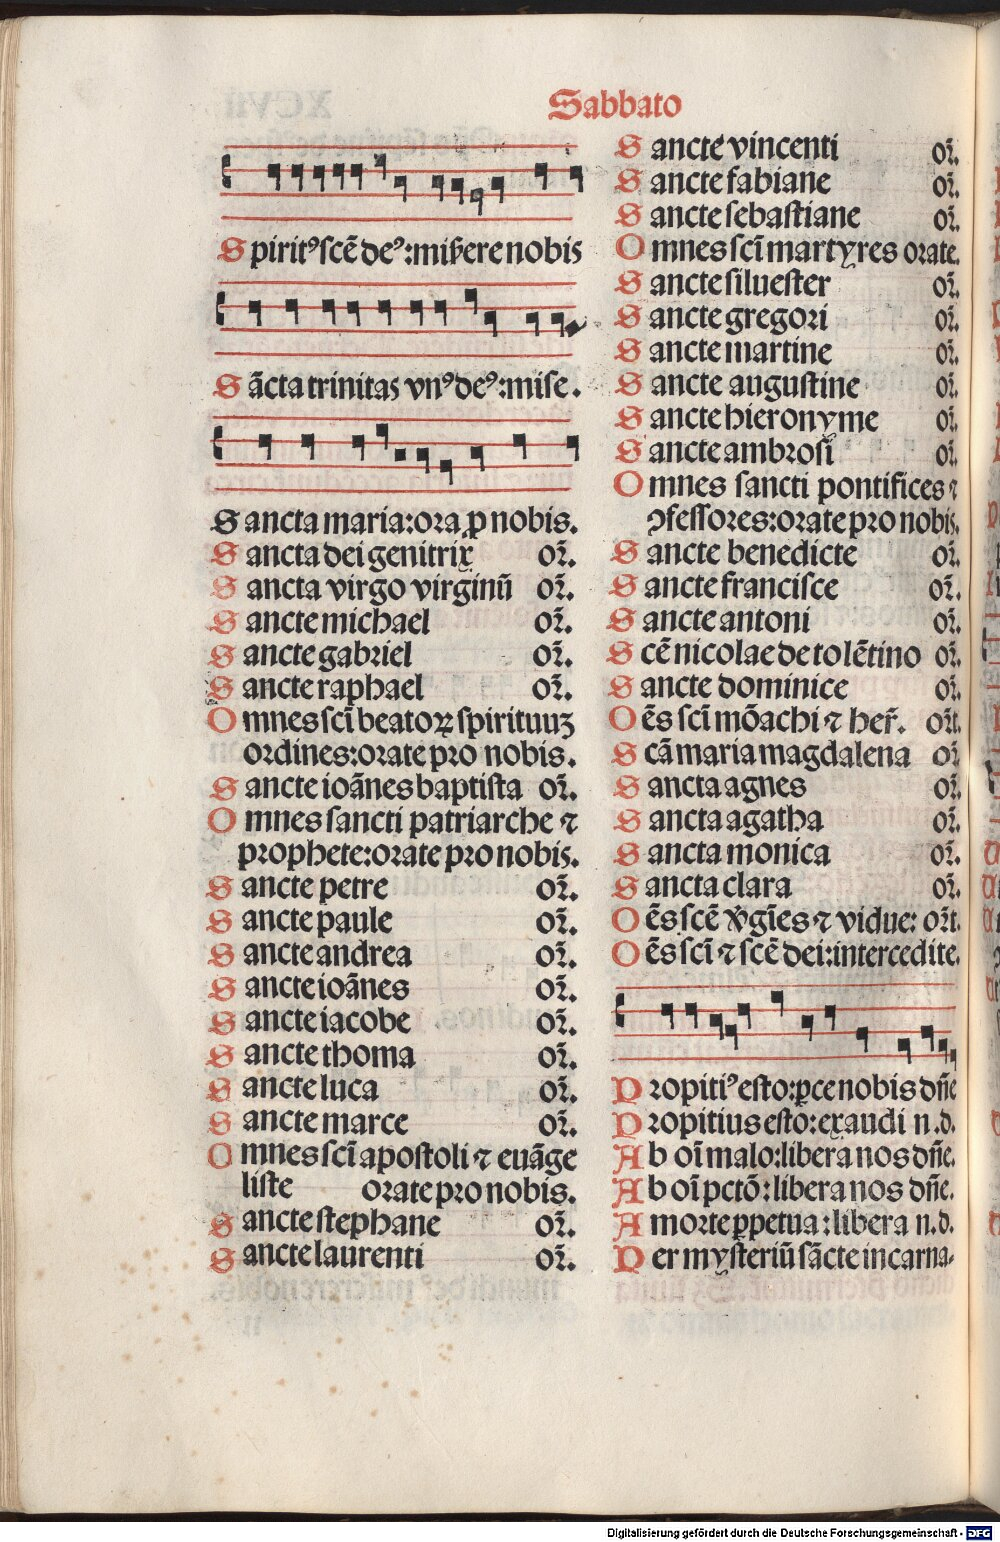 Sabbato
Spiritꝰ scē deꝰ: miẜere nobis
Sācta trinitas vnꝰ deꝰ: mise.
Sancta maria: ora ꝓ nobis.
Sancta dei genitrix oꝛ̄.
Sancta virgo virginū oꝛ̄.
Sancte michael oꝛ̄.
Sancte gabriel oꝛ̄.
Sancte raphael oꝛ̄.
Omnes scī beatoꝝ spirituuꝫ
ordines: orate pro nobis.
Sancte ioānes baptista oꝛ̄.
Omnes sancti patriarche ⁊
prophete: orate pro nobis.
Sancte petre oꝛ̄.
Sancte paule oꝛ̄.
Sancte andrea oꝛ̄.
Sancte ioānes oꝛ̄.
Sancte iacobe oꝛ̄.
Sancte thoma oꝛ̄.
Sancte luca oꝛ̄.
Sancte marce oꝛ̄.
Omnes scī apostoli ⁊ euāge
liste orate pro nobis.
Sancte stephane oꝛ̄.
Sancte laurenti oꝛ̄.
Sancte vincenti oꝛ̄.
Sancte fabiane oꝛ̄.
Sancte sebastiane oꝛ̄.
Omnes scī martyres orate.
Sancte siluester oꝛ̄.
Sancte gregori oꝛ̄.
Sancte martine oꝛ̄.
Sancte augustine oꝛ̄.
Sancte hieronyme oꝛ̄.
Sancte ambrosi oꝛ̄.
Omnes sancti pontifices ⁊
ꝯfessores: orate pro nobis.
Sancte benedicte oꝛ̄.
Sancte francisce oꝛ̄.
Sancte antoni oꝛ̄.
Scē nicolae de tolētino oꝛ̄.
Sancte dominice oꝛ̄.
Oēs scī mōachi ⁊ her̄. oꝛ̄t.
Scā maria magdalena oꝛ̄
Sancta agnes oꝛ̄.
Sancta agatha oꝛ̄.
Sancta monica oꝛ̄.
Sancta clara oꝛ̄.
Oēs scē v̓gīes ⁊ vidue: oꝛ̄t.
Oēs scī ⁊ scē dei: intercedite.
Propitiꝰ esto: ꝑce nobis dn̄e
Propitius esto: exaudi n. d.
Ab oī malo: libera nos dn̄e.
Ab oī pctō: libera nos dn̄e.
A morte ꝑpetua: libera n. d.
Per mysteriū sācte incarna-
Digitalisierung gefördert durch die Deutsche Forschungsgemeinschaft - DFG